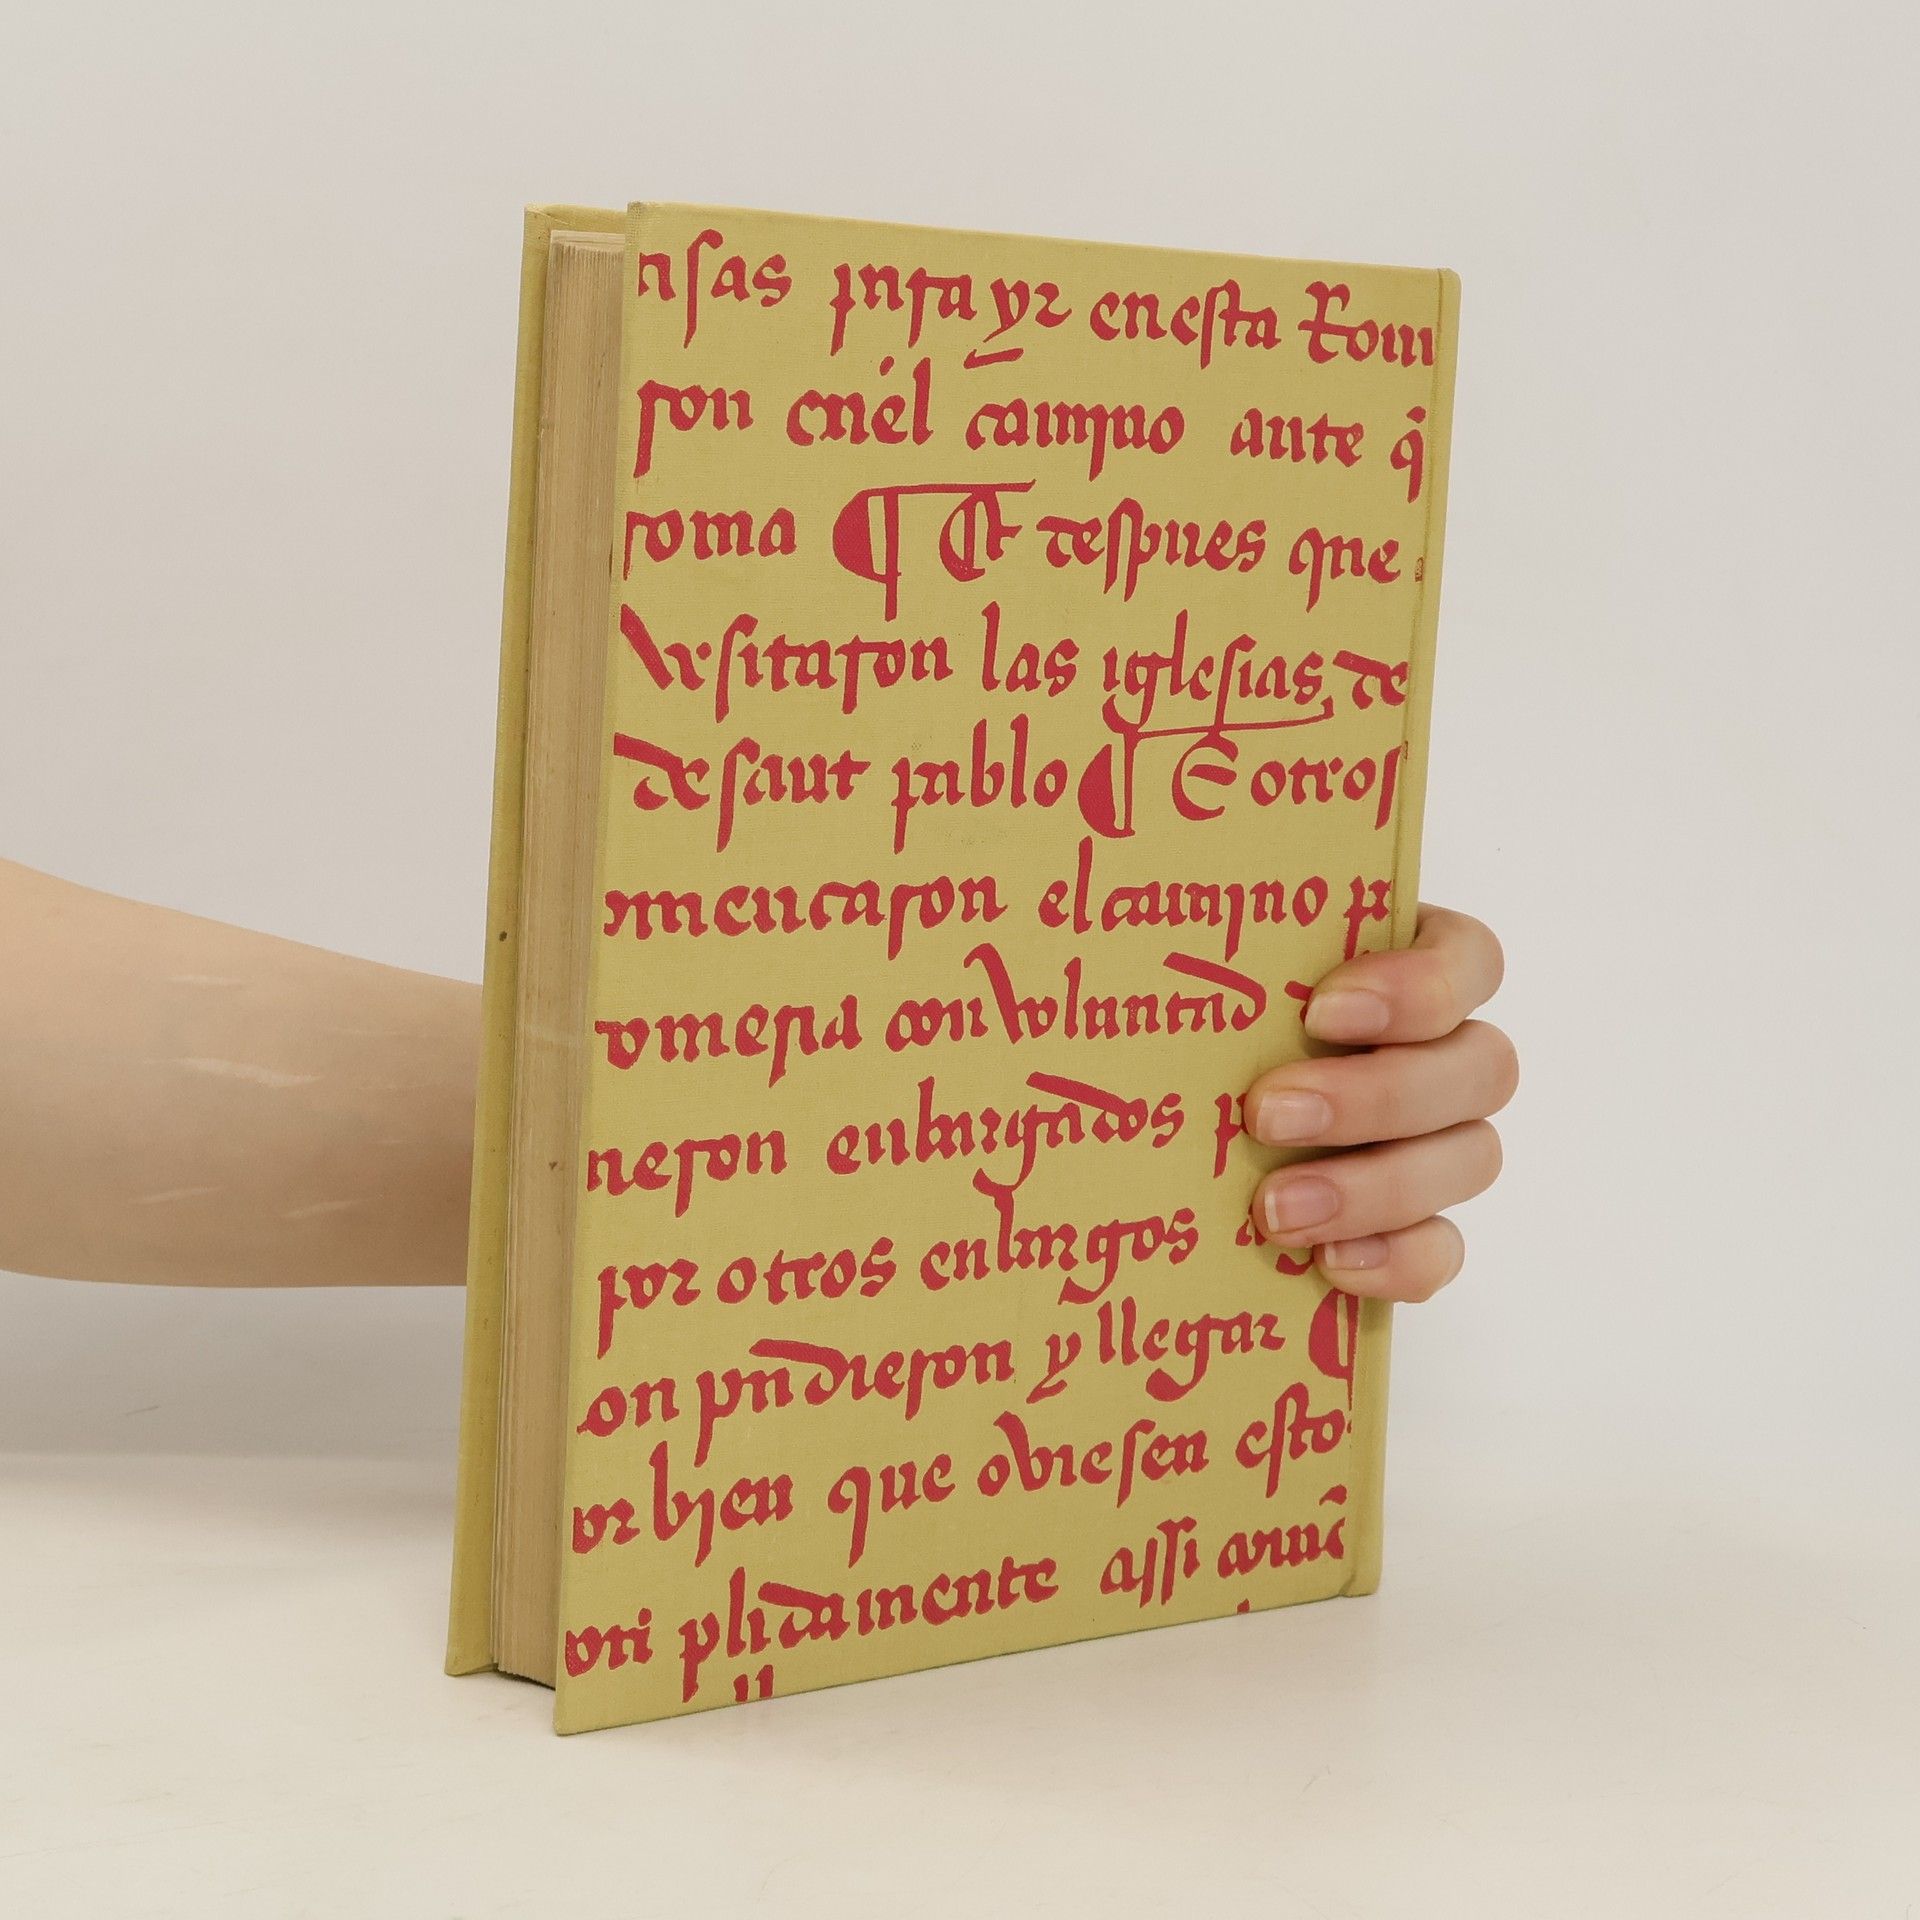 nsas para yr en esta Rom
ron enel camjno ante q̃
roma ¶ Et despues que
vysitaron las iglesias de
de sant pablo ¶ E otros
omencaron el camjno p
omeria con voluntad
neron enbargados p
por otros enbargos
on pudieron y llegar ¶
or bjen que oviesen esto
ori plidamente assi
ll